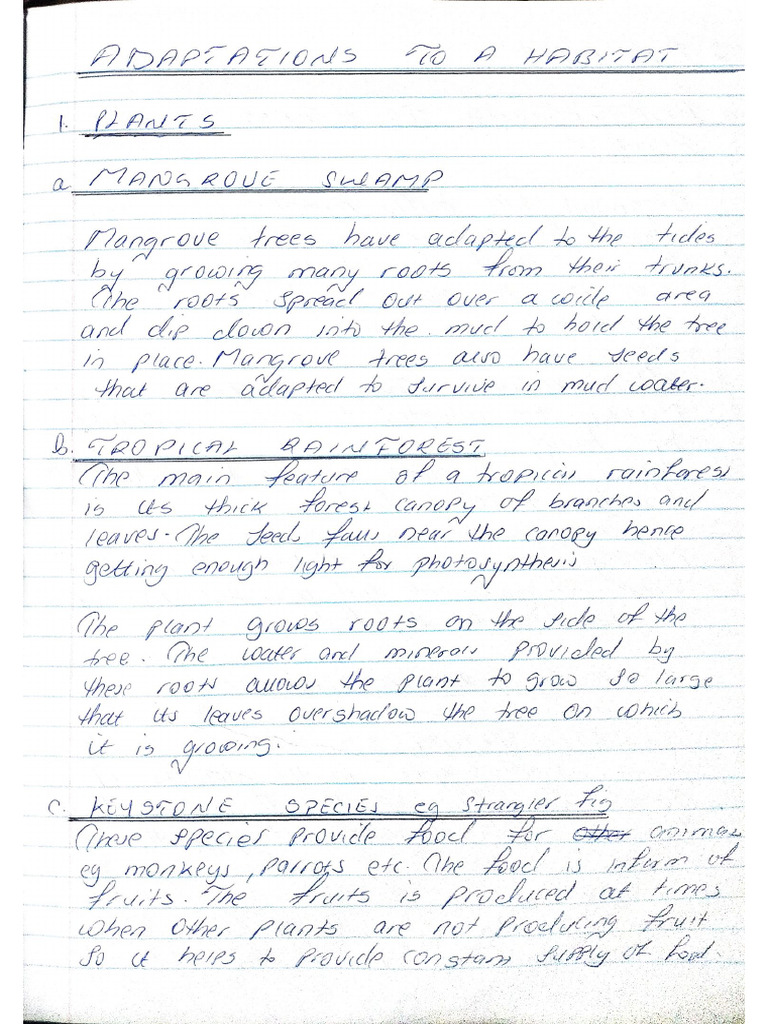 ADAPTATIONS TO A HABITAT
1. PLANTS
a. MANGROVE SWAMP
Mangrove trees have adapted to the tides
by growing many roots from their trunks.
The roots spread out over a wide area
and dip down into the mud to hold the tree
in place. Mangrove trees also have seeds
that are adapted to survive in mud water.
b. TROPICAL RAINFOREST
The main feature of a tropical rainforest
is its thick forest canopy of branches and
leaves. The seeds falls near the canopy hence
getting enough light for photosynthesis
The plant grows roots on the side of the
tree. The water and minerals provided by
these roots allows the plant to grow so large
that its leaves overshadow the tree on which
it is growing.
c. KEYSTONE SPECIES eg Strangler fig
These species provide food for other animals
eg monkeys, parrots etc. The food is inform of
fruits. The fruits is produced at times
when other plants are not producing fruit
so it helps to provide constant supply of food.